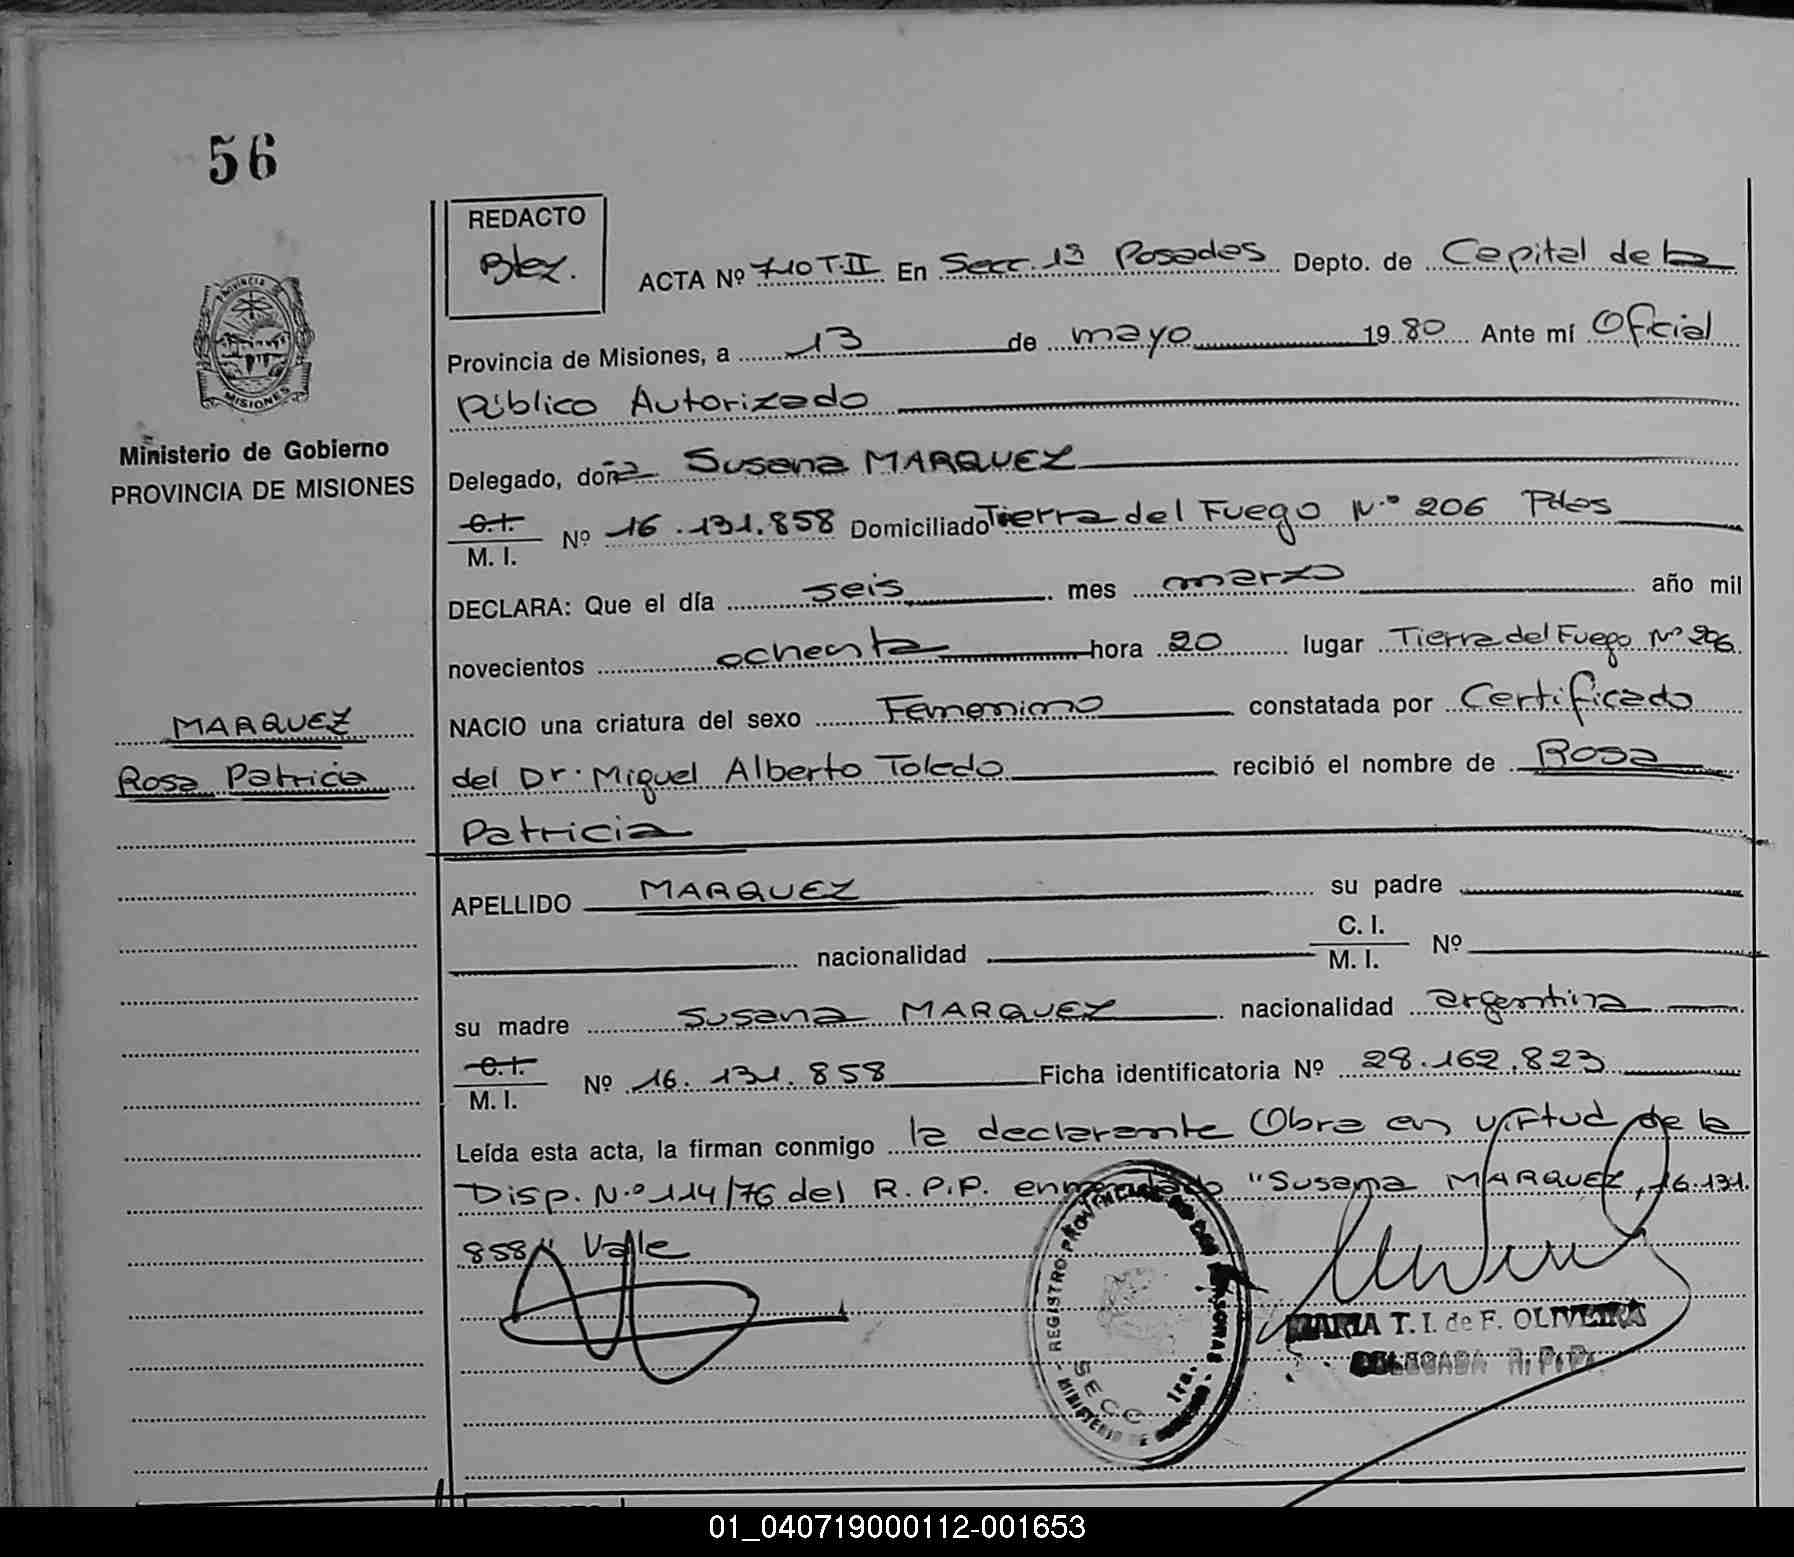 56
REDACTO
Blez.
ACTA Nº 710 T.II En Secc. 1ª Posadas Depto. de Capital de la
Provincia de Misiones, a 13 de mayo 19 80 Ante mí Oficial
Público Autorizado
PROVINCIA
MISIONES
Ministerio de Gobierno
PROVINCIA DE MISIONES
Delegado, doña Susana MARQUEZ
C.I.
M. I. Nº 16.131.858 Domiciliado Tierra del Fuego N.º 206 Pdas
DECLARA: Que el día seis mes marzo año mil
novecientos ochenta hora 20 lugar Tierra del Fuego Nº 206
NACIO una criatura del sexo Femenino constatada por Certificado
MARQUEZ
Rosa Patricia
del Dr. Miguel Alberto Toledo recibió el nombre de Rosa
Patricia
APELLIDO MARQUEZ su padre
nacionalidad C. I.
M. I. Nº
su madre Susana MARQUEZ nacionalidad argentina
C.I.
M. I. Nº 16.131.858 Ficha identificatoria Nº 28.162.823
Leída esta acta, la firman conmigo la declarante Obra en virtud de la
Disp. N.º 114/76 del R.P.P. enmendado "Susana MARQUEZ, 16.131.
858" Valle
REGISTRO PROVINCIAL DE LAS PERSONAS
SECC 1ra.
MINISTERIO DE GOBIERNO
MARIA T. I. de F. OLIVEIRA
DELEGADA R.P.P.
01_040719000112-001653